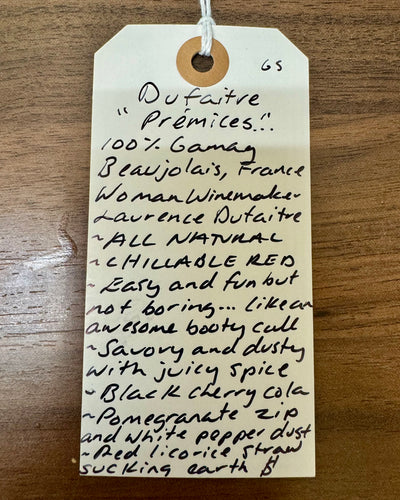 GS
Dufaitre
"Prémices"
100% Gamay
Beaujolais, France
Woman Winemaker
Laurence Dufaitre
~ALL NATURAL
~CHILLABLE RED
~Easy and fun but
not boring... like an
awesome booty call
~Savory and dusty
with juicy spice
~Black cherry cola
~Pomegranate zip
and white pepper dust
~Red licorice straw
sucking earth